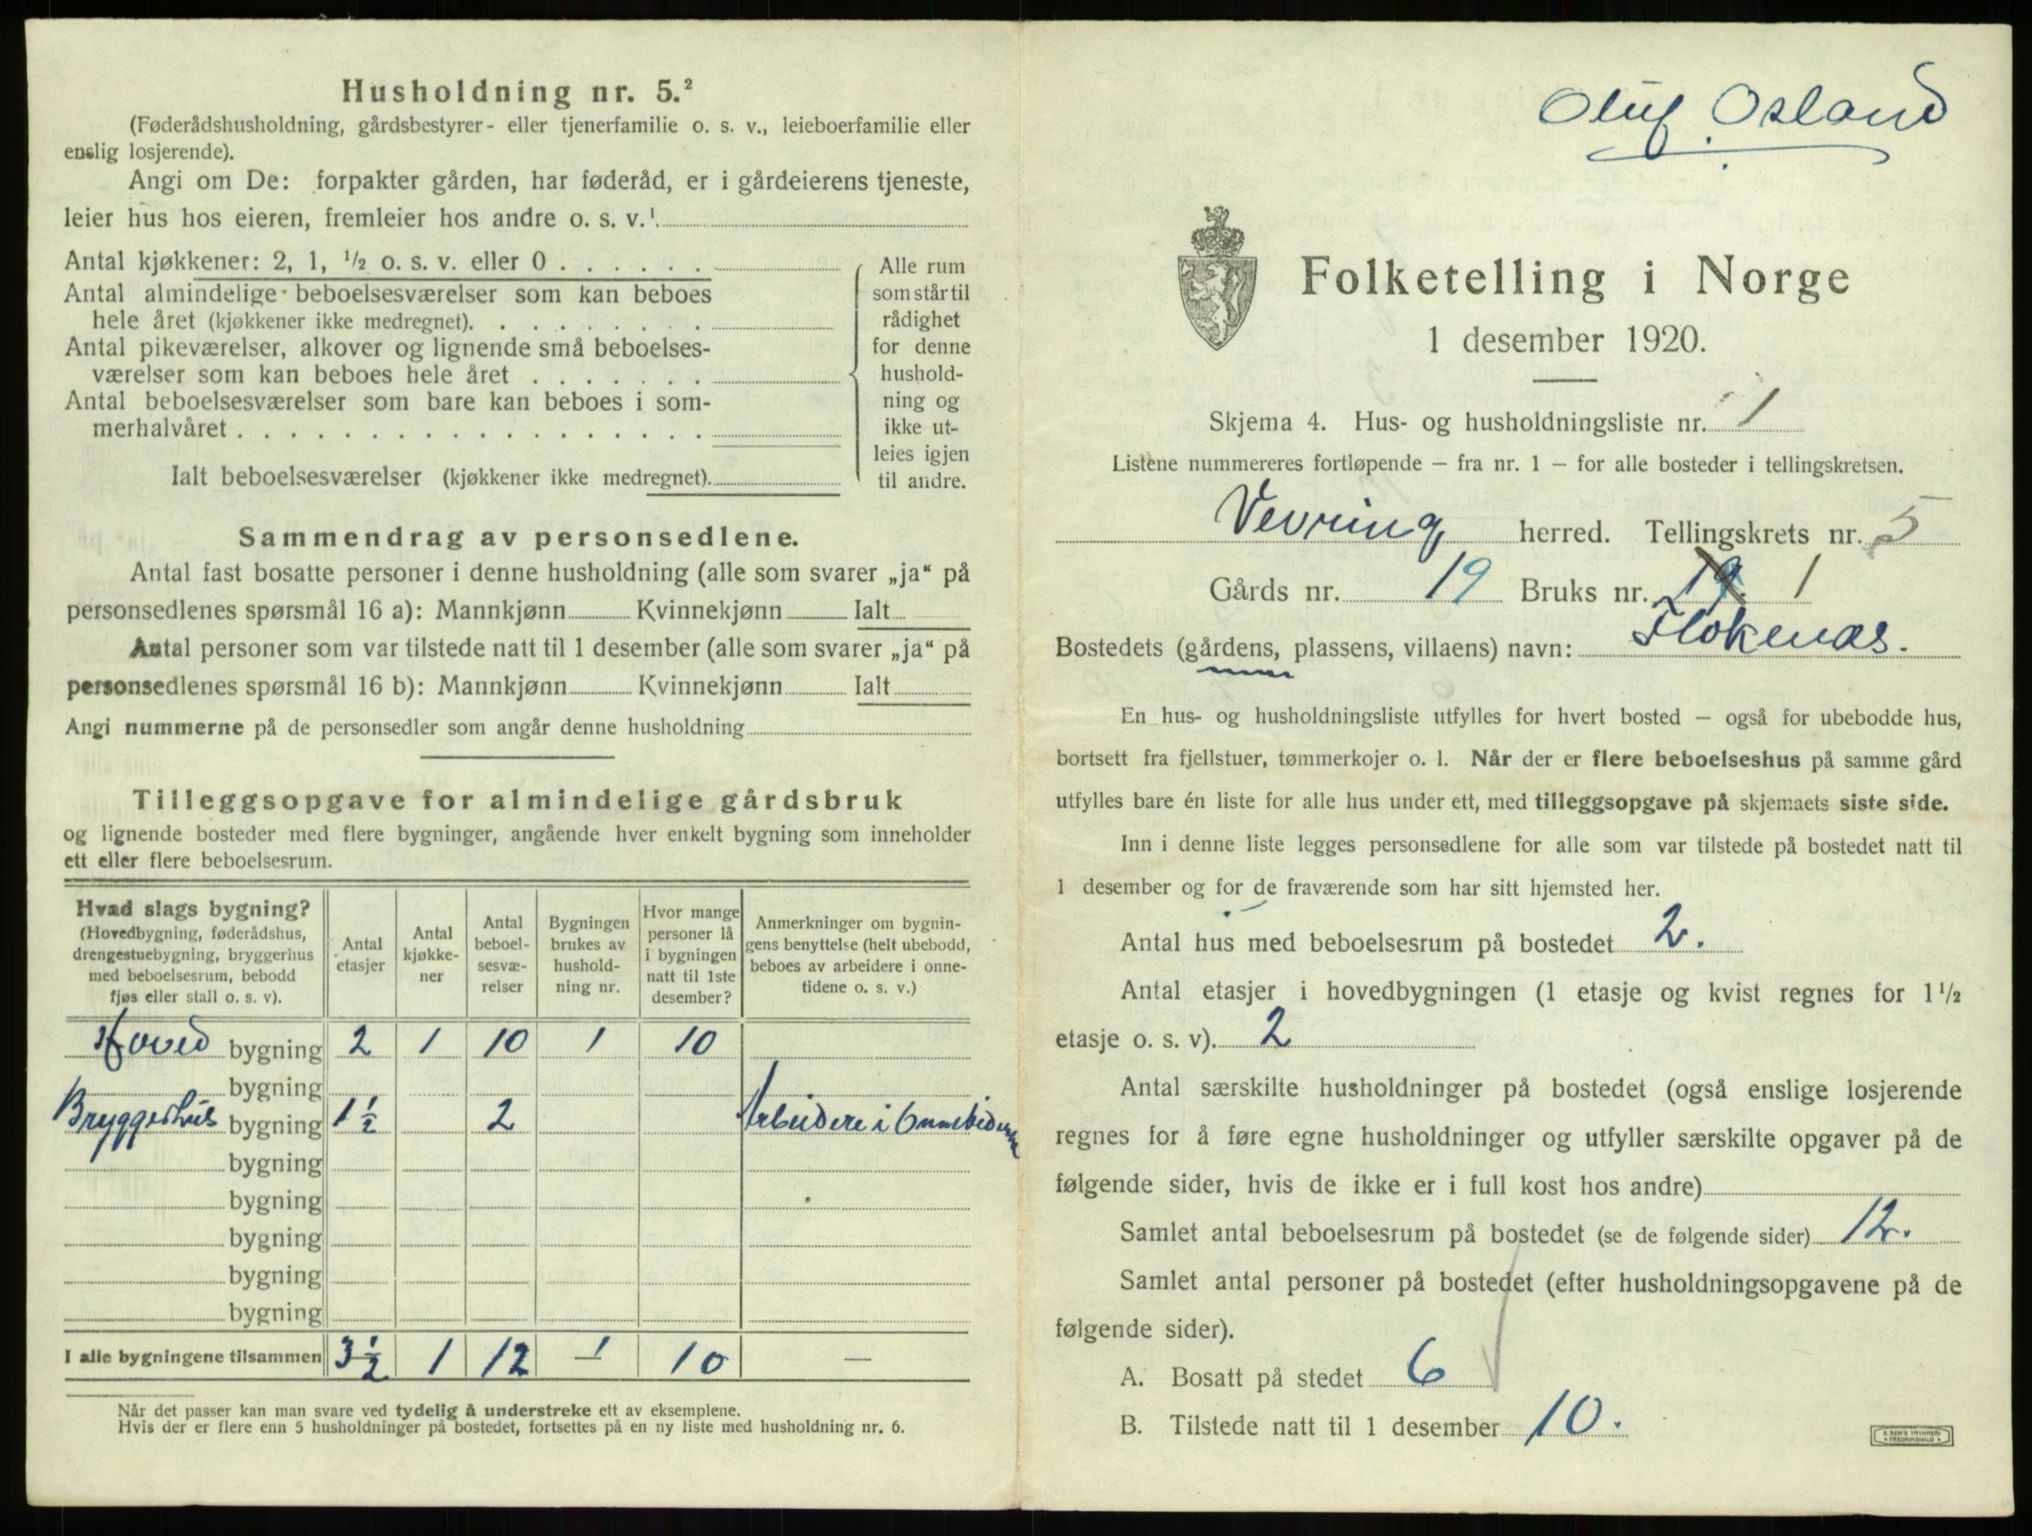 Husholdning nr. 5.²
(Føderådshusholdning, gårdsbestyrer- eller tjenerfamilie o. s. v., leieboerfamilie eller
enslig losjerende).
Angi om De: forpakter gården, har føderåd, er i gårdeierens tjeneste,
leier hus hos eieren, fremleier hos andre o. s. v.¹
Antal kjøkkener: 2, 1, ½ o. s. v. eller 0 . . . . . .
Antal almindelige beboelsesværelser som kan beboes
hele året (kjøkkener ikke medregnet). . . . . . . .
Antal pikeværelser, alkover og lignende små beboelses-
værelser som kan beboes hele året . . . . . . .
Antal beboelsesværelser som bare kan beboes i som-
merhalvåret . . . . . . . . . . . . . . . . . .
Ialt beboelsesværelser (kjøkkener ikke medregnet).
Alle rum
som står til
rådighet
for denne
hushold-
ning og
ikke ut-
leies igjen
til andre.
Sammendrag av personsedlene.
Antal fast bosatte personer i denne husholdning (alle som svarer „ja“ på
personsedlenes spørsmål 16 a): Mannkjønn Kvinnekjønn Ialt
Antal personer som var tilstede natt til 1 desember (alle som svarer „ja“ på
personsedlenes spørsmål 16 b): Mannkjønn Kvinnekjønn Ialt
Angi nummerne på de personsedler som angår denne husholdning
Tilleggsopgave for almindelige gårdsbruk
og lignende bosteder med flere bygninger, angående hver enkelt bygning som inneholder
ett eller flere beboelsesrum.
Hvad slags bygning?
(Hovedbygning, føderådshus,
drengestuebygning, bryggerhus
med beboelsesrum, bebodd
fjøs eller stall o. s. v).
Antal
etasjer
Antal
kjøkke-
ner
Antal
beboel-
sesvæ-
relser
Bygningen
brukes av
hushold-
ning nr.
Hvor mange
personer lå
i bygningen
natt til 1ste
desember?
Anmerkninger om bygnin-
gens benyttelse (helt ubebodd,
beboes av arbeidere i onne-
tidene o. s. v.)
Hoved bygning 2 1 10 1 10
bygning
Bryggerhus bygning 1 ½ 2 Arbeidere i Onnetidene
bygning
bygning
bygning
bygning
bygning
I alle bygningene tilsammen 3 ½ 1 12 1 10 —
Når det passer kan man svare ved tydelig å understreke ett av eksemplene.
Hvis der er flere enn 5 husholdninger på bostedet, fortsettes på en ny liste med husholdning nr. 6.
Oluf Osland
Folketelling i Norge
1 desember 1920.
Skjema 4. Hus- og husholdningsliste nr. 1
Listene nummereres fortløpende – fra nr. 1 – for alle bosteder i tellingskretsen.
Vevring herred. Tellingskrets nr. 5
Gårds nr. 19 Bruks nr. 19. 1
Bostedets (gårdens, plassens, villaens) navn: Flokenæs.
En hus- og husholdningsliste utfylles for hvert bosted – også for ubebodde hus,
bortsett fra fjellstuer, tømmerkojer o. l. Når der er flere beboelseshus på samme gård
utfylles bare én liste for alle hus under ett, med tilleggsopgave på skjemaets siste side.
Inn i denne liste legges personsedlene for alle som var tilstede på bostedet natt til
1 desember og for de fraværende som har sitt hjemsted her.
Antal hus med beboelsesrum på bostedet 2.
Antal etasjer i hovedbygningen (1 etasje og kvist regnes for 1½
etasje o. s. v). 2
Antal særskilte husholdninger på bostedet (også enslige losjerende
regnes for å føre egne husholdninger og utfyller særskilte opgaver på de
følgende sider, hvis de ikke er i full kost hos andre)
Samlet antal beboelsesrum på bostedet (se de følgende sider) 12.
Samlet antal personer på bostedet (efter husholdningsopgavene på de
følgende sider).
A. Bosatt på stedet 6
B. Tilstede natt til 1 desember 10.